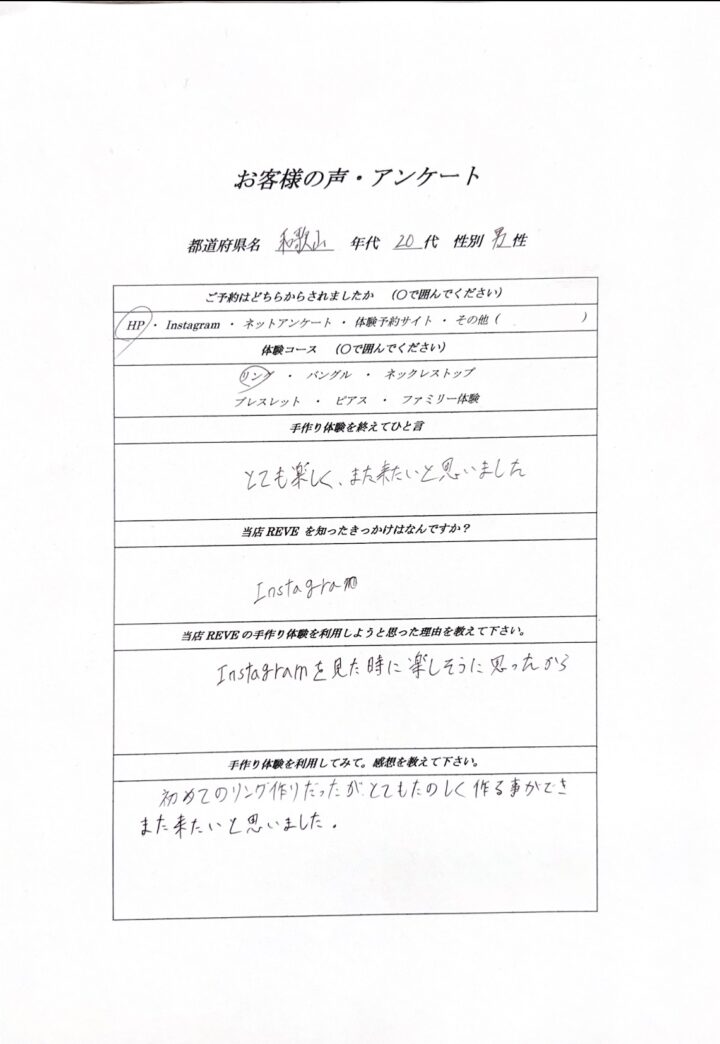 お客様の声・アンケート
都道府県名 和歌山 年代 20代 性別 男性
ご予約はどちらからされましたか (〇で囲んでください)
HP ・ Instagram ・ ネットアンケート ・ 体験予約サイト ・ その他 ( )
体験コース (〇で囲んでください)
リング ・ バングル ・ ネックレストップ
ブレスレット ・ ピアス ・ ファミリー体験
手作り体験を終えてひと言
とても楽しく、また来たいと思いました
当店 REVE を知ったきっかけはなんですか？
Instagram
当店 REVE の手作り体験を利用しようと思った理由を教えて下さい。
Instagramを見た時に楽しそうに思ったから
手作り体験を利用してみて。感想を教えて下さい。
初めてのリング作りだったがとてもたのしく作る事ができ
また来たいと思いました.